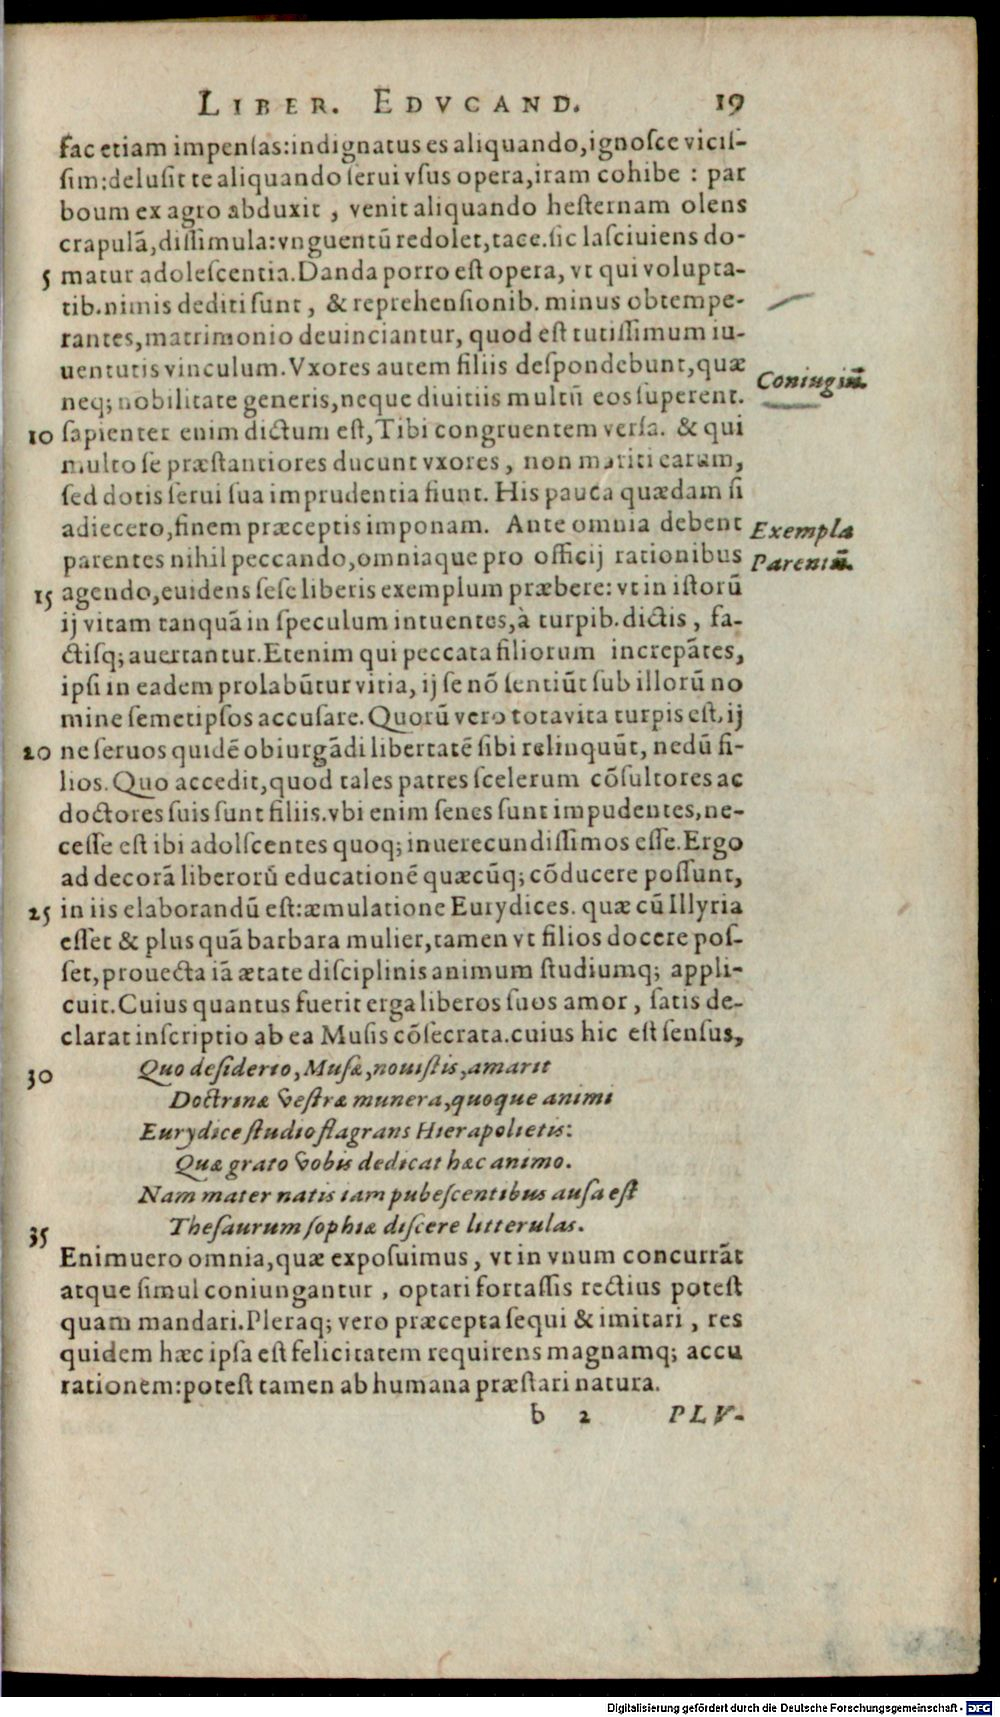 LIBER. EDVCAND. 19
fac etiam impensas: indignatus es aliquando, ignosce vicis-
sim: delusit te aliquando serui vsus opera, iram cohibe : par
boum ex agro abduxit , venit aliquando hesternam olens
crapulã, dissimula: vnguentũ redolet, tace. sic lasciuiens do-
5 matur adolescentia. Danda porro est opera, vt qui volupta-
tib. nimis dediti sunt , & reprehensionib. minus obtempe-
rantes, matrimonio deuinciantur, quod est tutissimum iu-
uentutis vinculum. Vxores autem filiis despondebunt, quæ
Coniugiũ.
neq; nobilitate generis, neque diuitiis multũ eos superent.
10 sapienter enim dictum est, Tibi congruentem versa. & qui
multo se præstantiores ducunt vxores , non mariti earum,
sed dotis serui sua imprudentia fiunt. His pauca quædam si
adiecero, finem præceptis imponam. Ante omnia debent
Exempla
parentes nihil peccando, omniaque pro officij rationibus
Parentũ.
15 agendo, euidens sese liberis exemplum præbere: vt in istorũ
ij vitam tanquã in speculum intuentes, à turpib. dictis , fa-
ctisq; auertantur. Etenim qui peccata filiorum increpãtes,
ipsi in eadem prolabũtur vitia, ij se nõ sentiũt sub illorũ no
mine semetipsos accusare. Quorũ vero tota vita turpis est, ij
20 ne seruos quidẽ obiurgãdi libertatẽ sibi relinquũt, nedũ fi-
lios. Quo accedit, quod tales patres scelerum cõsultores ac
doctores suis sunt filiis. vbi enim senes sunt impudentes, ne-
cesse est ibi adolscentes quoq; inuerecundissimos esse. Ergo
ad decorã liberorũ educationẽ quæcũq; cõducere possunt,
25 in iis elaborandũ est: æmulatione Eurydices. quæ cũ Illyria
esset & plus quã barbara mulier, tamen vt filios docere pos-
set, prouecta iã ætate disciplinis animum studiumq; appli-
cuit. Cuius quantus fuerit erga liberos suos amor , satis de-
clarat inscriptio ab ea Musis cõsecrata. cuius hic est sensus,
30 Quo desiderio, Musæ, nouistis, amarit
Doctrinæ vestræ munera, quoque animi
Eurydice studio flagrans Hierapolietis:
Quæ grato vobis dedicat hæc animo.
Nam mater natis iam pubescentibus ausa est
35 Thesaurum sophiæ discere litterulas.
Enimuero omnia, quæ exposuimus , vt in vnum concurrãt
atque simul coniungantur , optari fortassis rectius potest
quam mandari. Pleraq; vero præcepta sequi & imitari , res
quidem hæc ipsa est felicitatem requirens magnamq; accu
rationem: potest tamen ab humana præstari natura.
b 2 PLV-
Digitalisierung gefördert durch die Deutsche Forschungsgemeinschaft - DFG